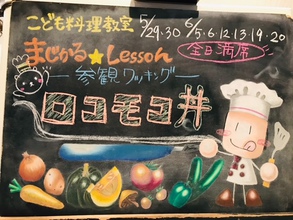 こども料理教室 5/29・30 6/5・6・12・13・19・20
まじかる★Lesson 全日満席
参観クッキング
ロコモコ丼